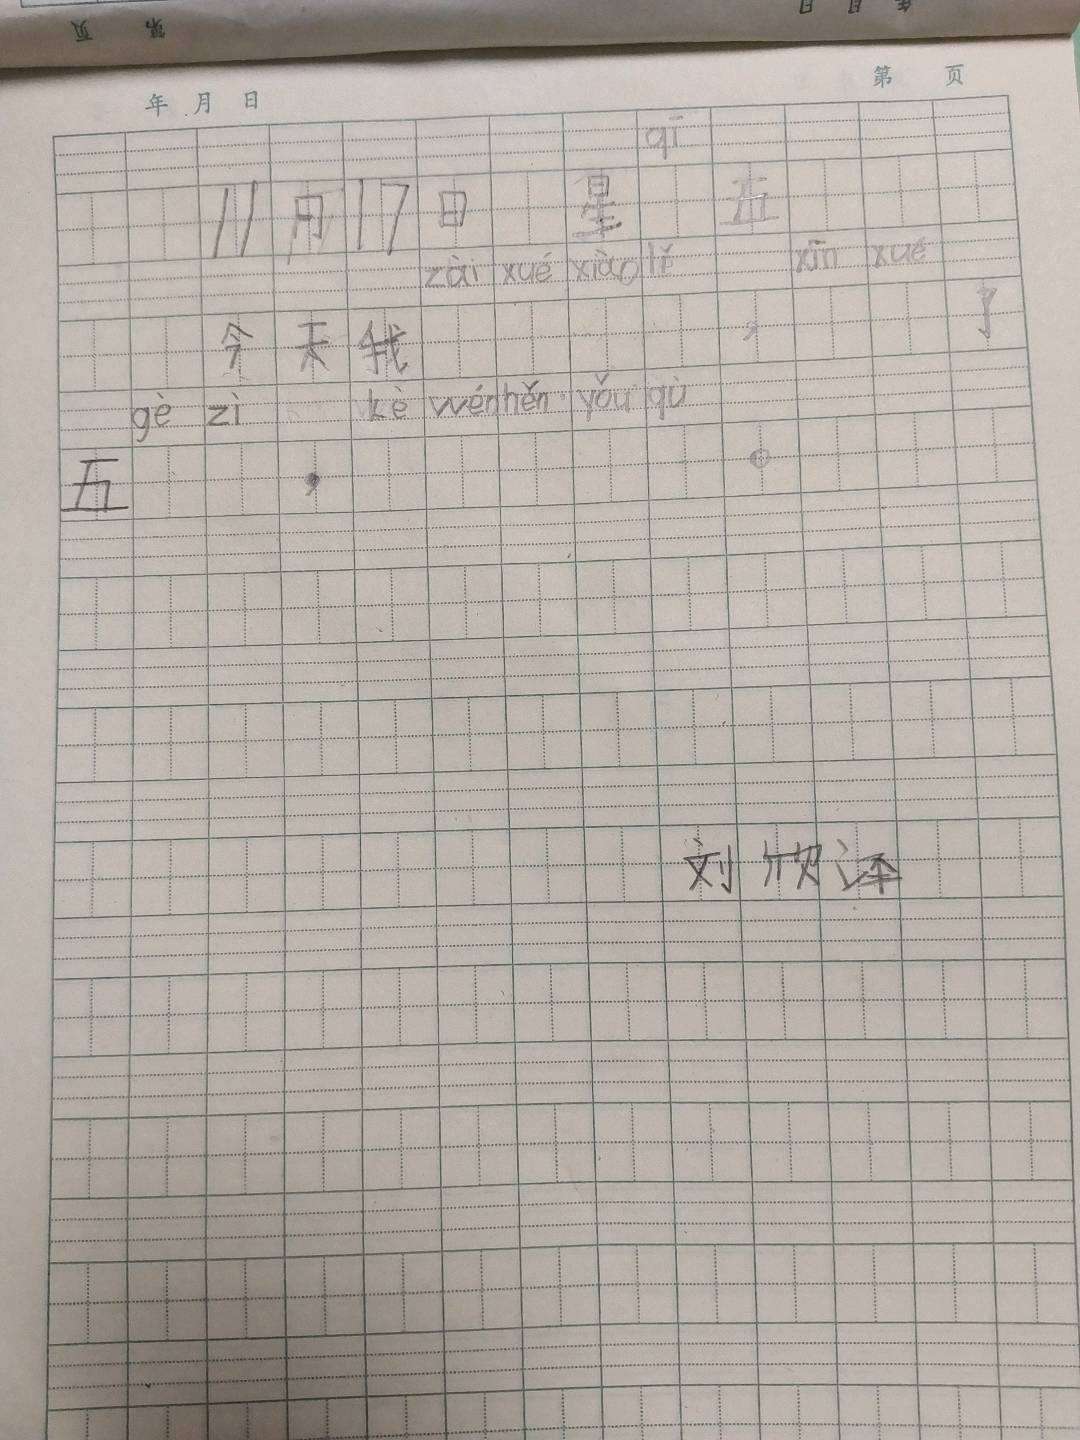 第 页
年 月 日
年 月 日 第 页
qī
11月17日 星 五
zài xué xiào lǐ xīn xué
今天我 , 了
gè zì kè wén hěn yǒu qù
五 , 。
刘欣泽